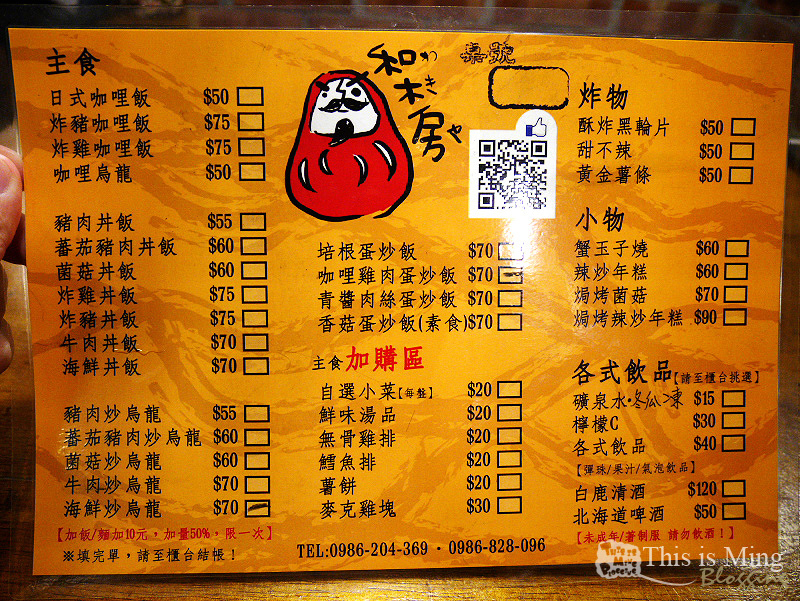 主食
日式咖哩飯 $50
炸豬咖哩飯 $75
炸雞咖哩飯 $75
咖哩烏龍 $50
豬肉丼飯 $55
蕃茄豬肉丼飯 $60
菌菇丼飯 $60
炸雞丼飯 $75
炸豬丼飯 $75
牛肉丼飯 $70
海鮮丼飯 $70
豬肉炒烏龍 $55
蕃茄豬肉炒烏龍 $60
菌菇炒烏龍 $60
牛肉炒烏龍 $70
海鮮炒烏龍 $70
【加飯/麵加10元,加量50%,限一次】
※填完單,請至櫃台結帳!
和木房
わきや
桌號
培根蛋炒飯 $70
咖哩雞肉蛋炒飯 $70
青醬肉絲蛋炒飯 $70
香菇蛋炒飯(素食) $70
主食加購區
自選小菜【每盤】 $20
鮮味湯品 $20
無骨雞排 $20
鱈魚排 $20
薯餅 $20
麥克雞塊 $30
TEL:0986-204-369・0986-828-096
炸物
酥炸黑輪片 $50
甜不辣 $50
黃金薯條 $50
小物
蟹玉子燒 $60
辣炒年糕 $60
焗烤菌菇 $70
焗烤辣炒年糕 $90
各式飲品【請至櫃台挑選】
礦泉水・冬瓜凍 $15
檸檬C $30
各式飲品 $40
【彈珠/果汁/氣泡飲品】
白鹿清酒 $120
北海道啤酒 $50
【未成年/著制服 請勿飲酒!】
This is Ming
Blogging